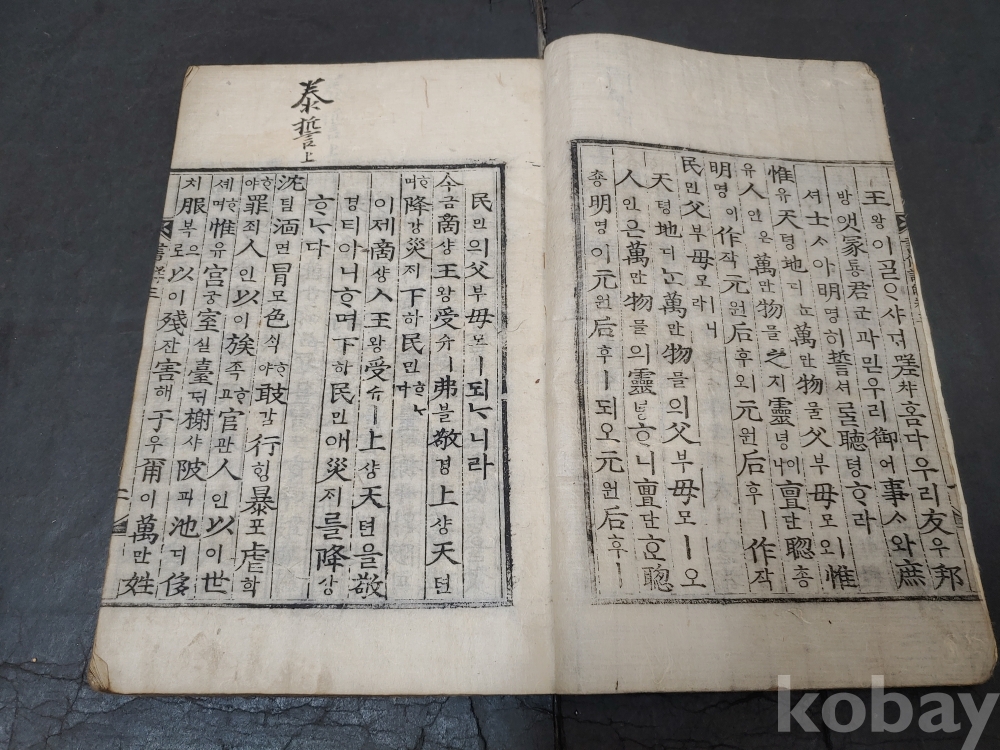 王왕이ᄀᆞᆯᄋᆞ샤ᄃᆡ嗟챠홉다우리友우邦
방앳冢통君군과믿우리御어事ᄉᆞ와庶
셔士ᄉᆞ아明명히誓셔ᄅᆞᆯ聽텽ᄒᆞ라
惟유天텬地디ᄂᆞᆫ萬만物물父부母모ㅣ오惟
유人인은萬만物물之지靈녕이니亶단聰총
明명이作작元원后후ㅣ오元원后후ㅣ作작
民민父부母모ㅣ니라
天텬地디ᄂᆞᆫ萬만物믈의父부母모ㅣ오
人인은萬만物믈의靈녕ᄒᆞ니亶단ᄒᆞᆫ聰
총明명이元원后후ㅣ되오元원后후ㅣ
泰誓上
民민의父부母모ㅣ되ᄂᆞ니라
今금商샹王왕受슈ㅣ弗블敬경上샹天텬
ᄒᆞ며降강災ᄌᆡ下하民민ᄒᆞᄂᆞ다
이제商샹ㅅ王왕受슈ㅣ上샹天텬을敬
경티아니ᄒᆞ며下하民민애災ᄌᆡ를降강
ᄒᆞᄂᆞ다
沈팀湎면冒모色ᄉᆡᆨᄒᆞ야敢감行ᄒᆡᆼ暴포虐학
ᄒᆞ야罪죄人인以이族족ᄒᆞ고官관人인以이世
셰ᄒᆞ며惟유宮궁室실臺ᄃᆡ榭샤陂피池디侈
치服복으로以이殘잔害해于우爾이萬만姓
kobay